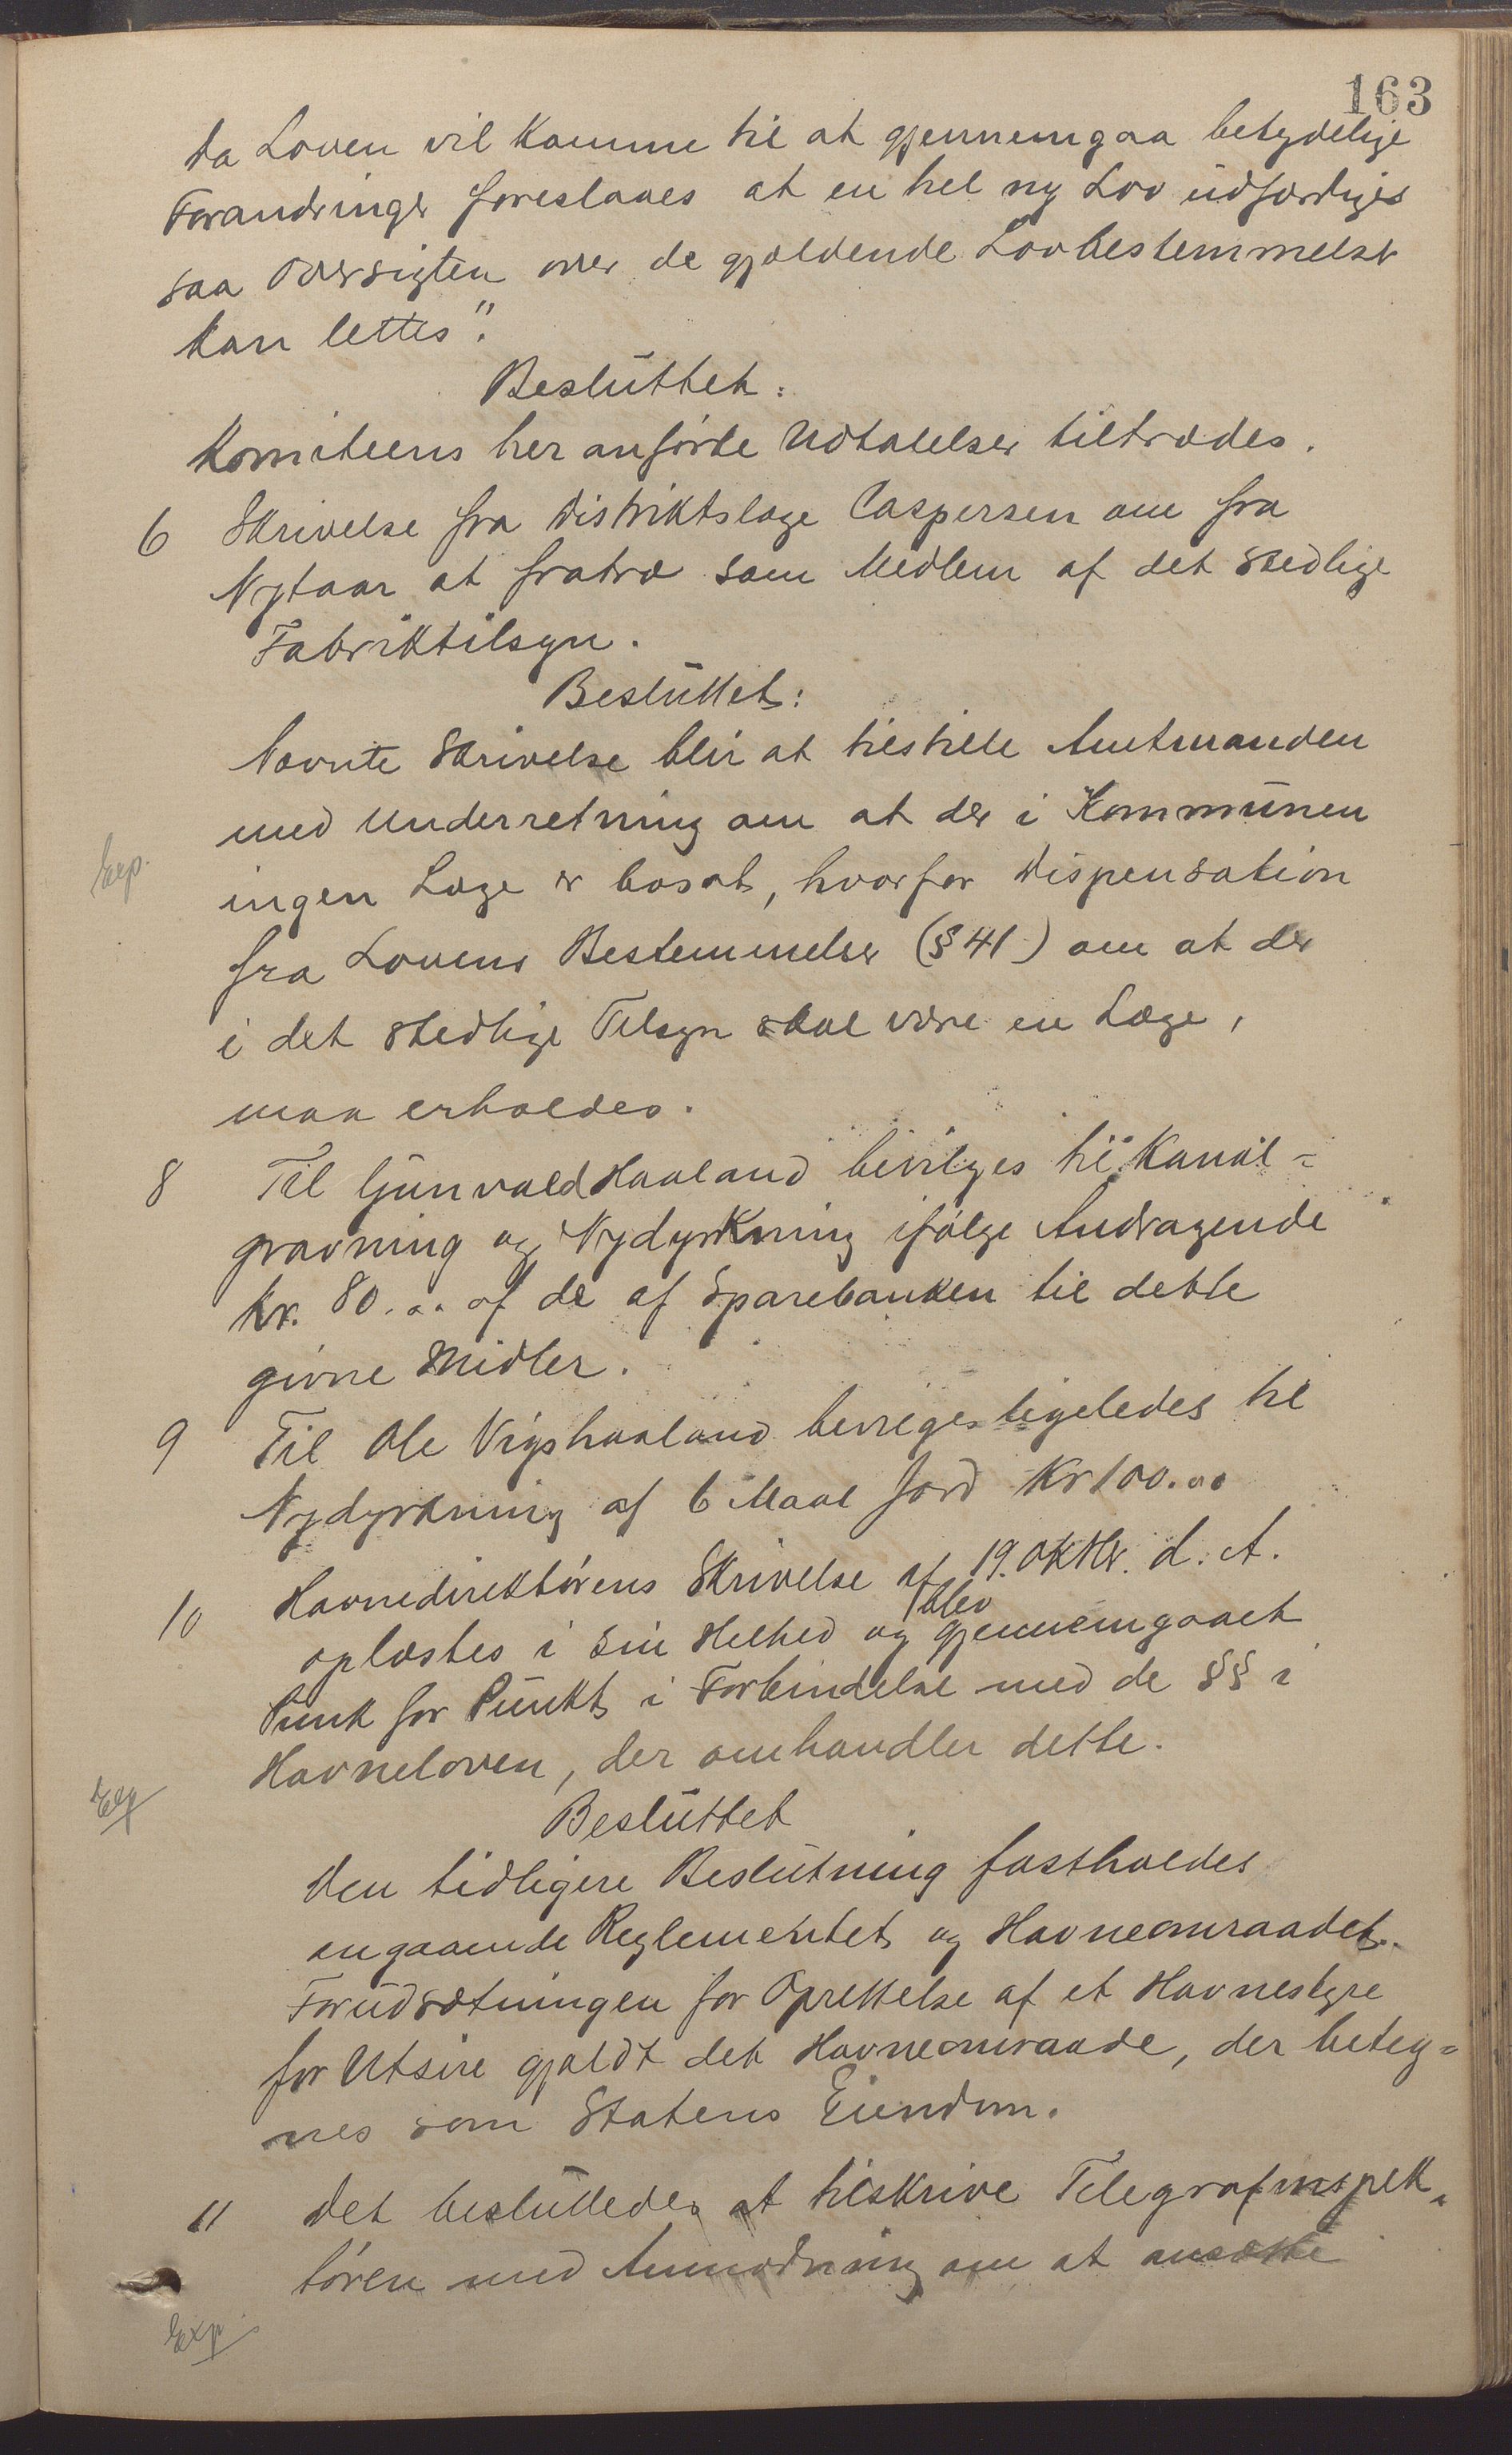 163
da Loven vil komme til at gjennemgaa betydelige
Forandringer foreslaaes at en hel ny Lov udfærdiges
saa Oversigten over de gjældende Lovbestemmelser
kan lettes".
Besluttet:
Komiteens her anførte Udtalelser tiltrædes.
6 Skrivelse fra Distriktslæge Caspersen om fra
Nytaar at fratræ som Medlem af det stedlige
Fabriktilsyn.
Besluttet:
Nævnte Skrivelse blir at tilstille Amtmanden
med Underretning om at der i Kommunen
Exp.
ingen Læge er bosat, hvorfor Dispensation
fra Lovens Bestemmelser (§ 41) om at der
i det stedlige Tilsyn skal være en Læge,
maa erholdes.
8 Til Gunvald Haaland bevilges til Kanal-
gravning og Nydyrkning ifølge Andragende
kr. 80.00 af de af Sparebanken til dette
givne Midler.
9 Til Ole Vigshaaland beviges ligeledes til
Nydyrkning af 6 Maal jord Kr 100.00
10 Havnedirektørens Skrivelse af 19. Oktbr. d. A.
oplæstes i sin Helhed og blev gjennemgaaet
Punk for Punkt i Forbindelse med de §§ i
Havneloven, der omhandler dette.
Exp
Besluttet
Den tidligere Beslutning fastholdes
angaaende Reglementet og Havneomraadet.
Forudsætningen for Oprettelse af et Havnestyre
for Utsire gjaldt det Havneomraade, der beteg-
nes som Statens Eiendom.
11 Det besluttedes at tilskrive Telegrafinspek-
tøren med Anmodning om at ansætte
Exp.